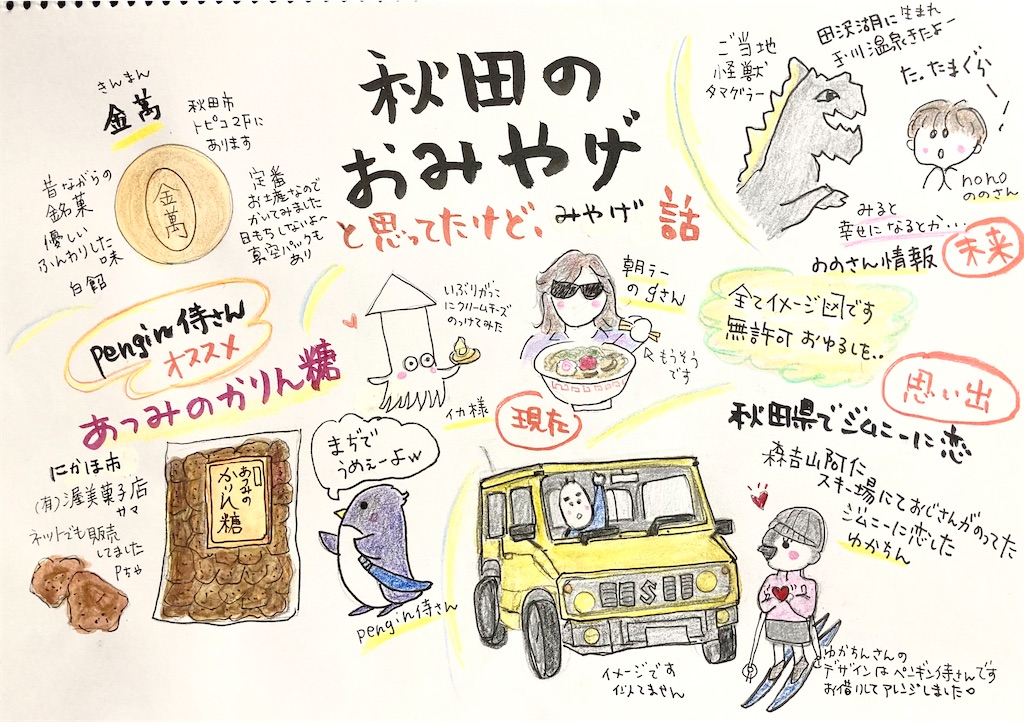 秋田の
おみやげ
と思ってたけど、みやげ話
きんまん
金萬
秋田市
トピコ2Fに
あります
金萬
昔ながらの
銘菓
優しい
ふんわりした
味
白餡
定番
お土産なので
かいてみました
日もちしないよ〜
真空パックも
あり
ご当地
怪獣
タマグラー
田沢湖に生まれ
玉川温泉きたよー
た、たまぐらー
nono
ののさん
みると
幸せになるとか・・・
ののさん情報
未来
pengin侍さん
オススメ
あつみのかりん糖
にかほ市
(有)渥美菓子店
サマ
ネットでも販売
してました
Pちゃ
あつみの
かりん糖
まぢで
うめぇーよw
pengin侍さん
いぶりがっこ
にクリームチーズ
のっけてみた
イカ様
朝ラー
のgさん
もうそう
です
現在
全てイメージ図です
無許可おゆるしを..
思い出
秋田県でジムニーに恋
森吉山阿仁
スキー場にておじさんがのってた
ジムニーに恋した
ゆかちん
イメージです
似てません
ゆかちんさんの
デザインはペンギン侍さんです
お借りしてアレンジしました